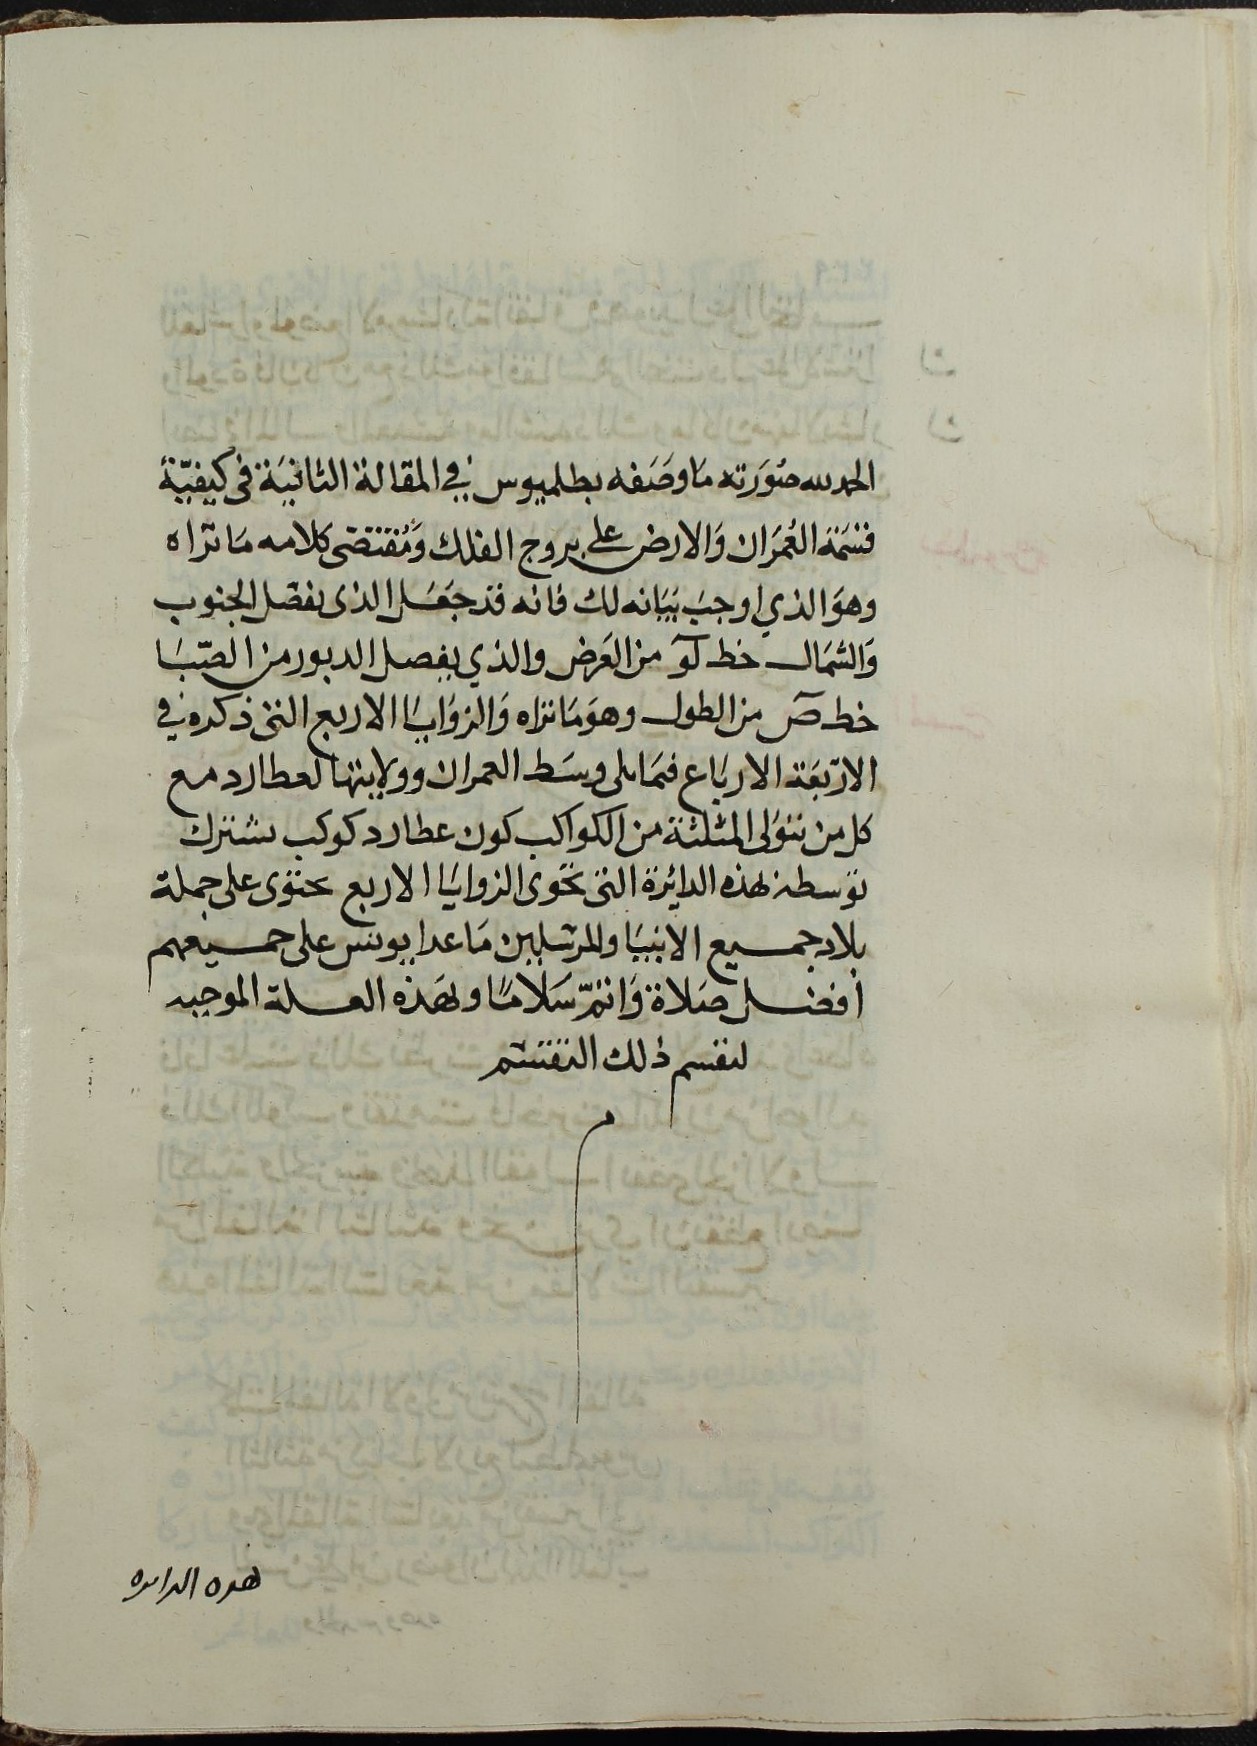 الحمد لله صورته ما وصفه بطلميوس في المقالة الثانية في كيفية
قسمة العمران والارض على بروج الفلك ومقتضى كلامه ما تراه
وهو الذي اوجب بيانه لك فانه قد جعل الذى يفصل الجنوب
والشمال خط لو من العرض والذي يفصل الدبور من الصبا
خط ص من الطول وهو ما تراه والزوايا الاربع التى ذكره في
الاربعة الارباع فيما يلى وسط العمران وولايتها لعطارد مع
كل من يتولى المثلثة من الكواكب كون عطارد كوكب يشترك
توسطه لهذه الدائرة التى تحوى الزوايا الاربع تحتوى على جملة
بلاد جميع الانبيا والمرسلين ما عدا يونس على جميعهم
أفضل صلاة واتم سلاما ولهذه العلة الموجبه
لتقسم ذلك التقسم
م
هده الدايره